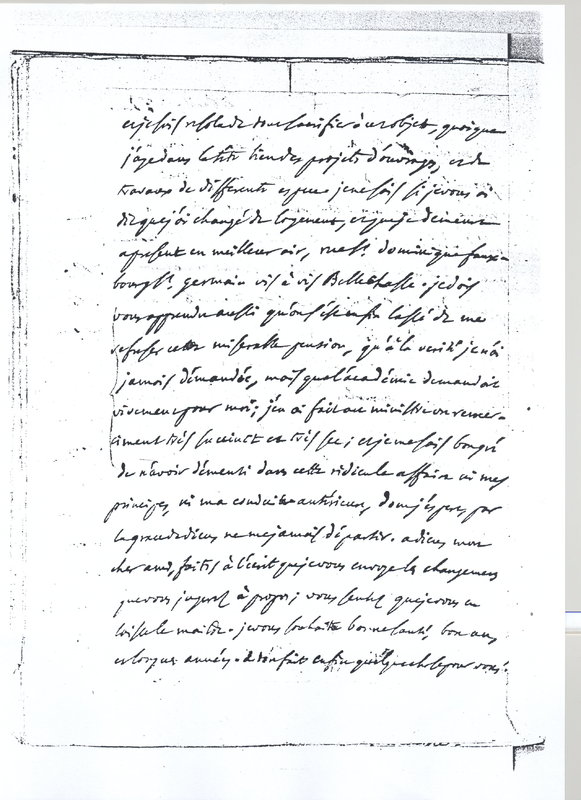 et je suis resolu de tout sacrifier à cet objet, quoique
j'aye dans la tête bien des projets d'ouvrages, et de
travaux de differente espece. je ne sais si je vous ai
dit que j'ai changé de logement, et que je demeure
apresent en meilleur air, rue St. dominique faux-
bourg St. germain vis à vis Bellechasse. je dois
vous apprendre aussi qu'on s'est enfin lassé de me
refuser cette miserable pension, qu'à la verité je n'ai
jamais démandée, mais que l'académie demandoit
vivement pour moi; j'en ai fait au ministre un remer-
ciment très succinct et très sec; et je me sais bon gré
de n'avoir démenti dans cette ridicule affaire ni mes
principes, ni ma conduite antérieure, dont j'espere par
la grace de dieu ne me jamais départir. adieu mon
cher ami, faites à l'écrit que je vous envoye les changemens
que vous jugerez à propos; vous sentez que je vous en
laisse le maitre. je vous souhaite bonne santé, bon ans
et longues années. a t'on fait enfin quelque chose pour vous?